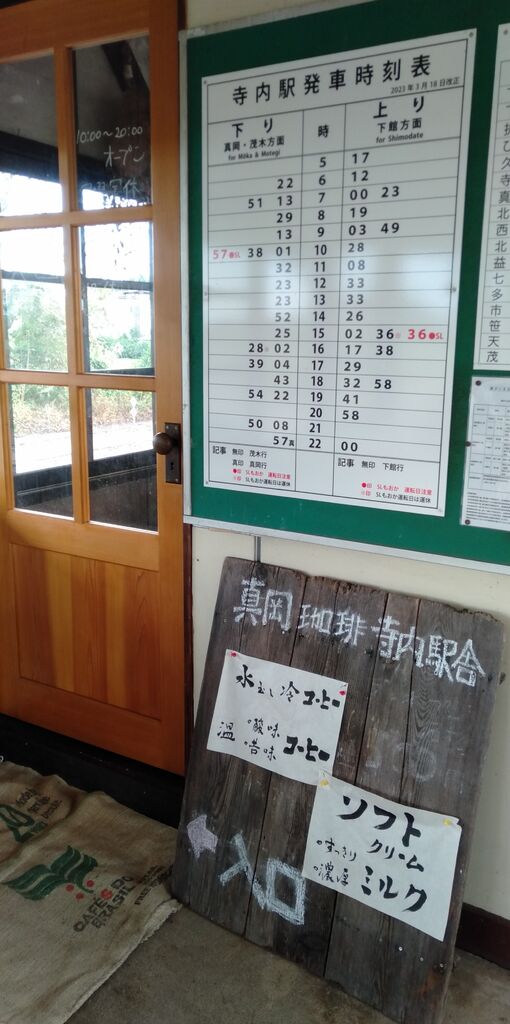 10:00〜20:00
オープン
定休
寺内駅発車時刻表
2023年3月18日改正
下り 時 上り
真岡・茂木方面 下館方面
for Mōka & Motegi for Shimodate
5 17
22 6 12
51 13 7 00 23
29 8 19
13 9 03 49
57●SL 38 01 10 28
32 11 08
23 12 33
23 13 33
52 14 26
25 15 02 36※ 36●SL
28※ 02 16 17 38
39 04 17 29
43 18 32 58
54 22 19 41
20 58
50 08 21
57真 22 00
記事 無印 茂木行 記事 無印 下館行
真印 真岡行
●印 SLもおか 運転日注意 ●印 SLもおか 運転日注意
※印 SLもおか運転日は運休 ※印 SLもおか運転日は運休
ひ
久
寺
真
北
西
北
益
七
多
市
笹
天
茂
真岡珈琲寺内駅舎
水出し冷コーヒー
温 ・酸味 コーヒー
・苦味
ソフト
クリーム
・すっきり
・濃厚 ミルク
入口
CAFÉS DO
BRASIL